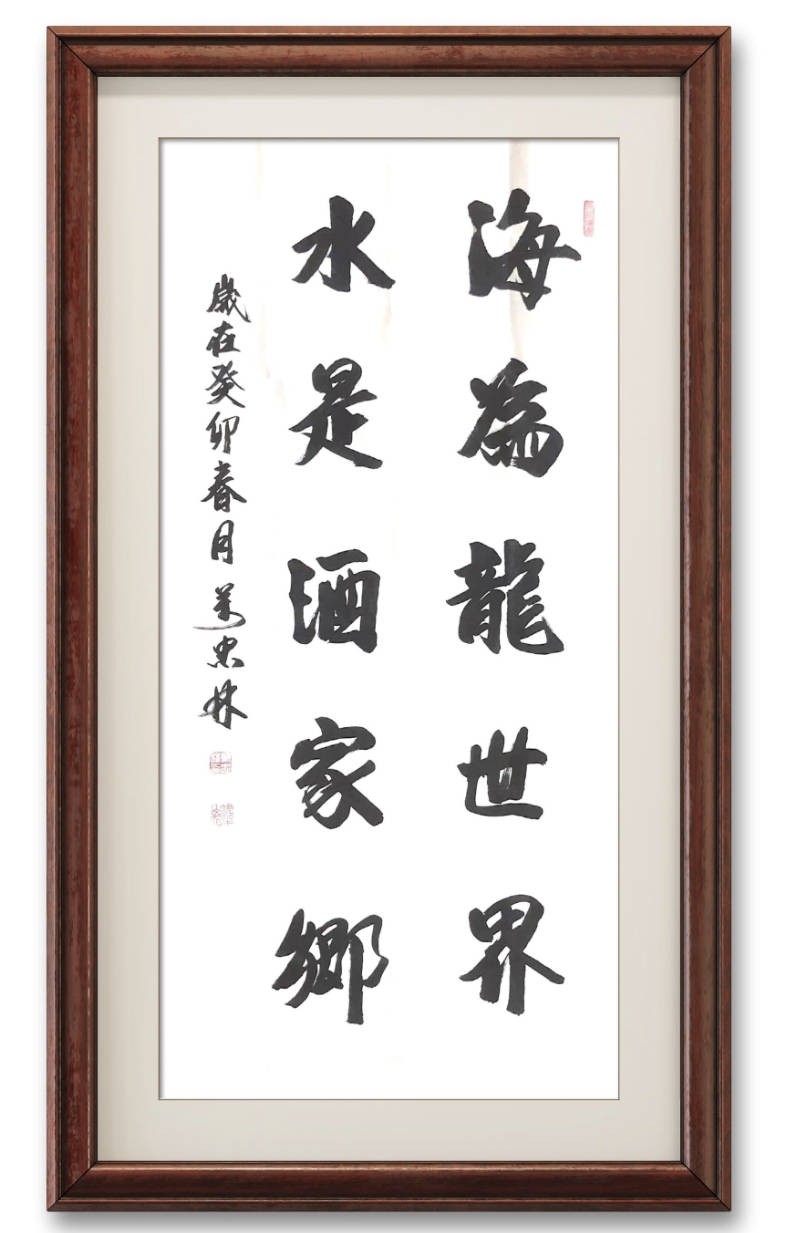 海為龍世界
水是酒家鄉
歲在癸卯春月萬忠林